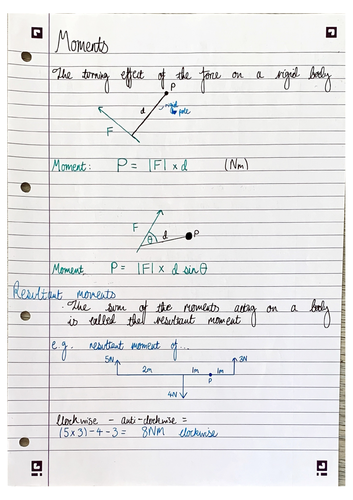 Moments
The turning effect of the force on a rigid body
P
d
rigid
pole
F
Moment: P = |F| x d (Nm)
F
θ
d
P
Moment. P = |F| x d sinθ
Resultant moments
· The sum of the moments acting on a body
is called the resultant moment
e.g. resultant moment of...
5N
3N
2m
1m
1m
P
4N
Clockwise - anti-clockwise =
(5x3)-4-3= 8NM clockwise